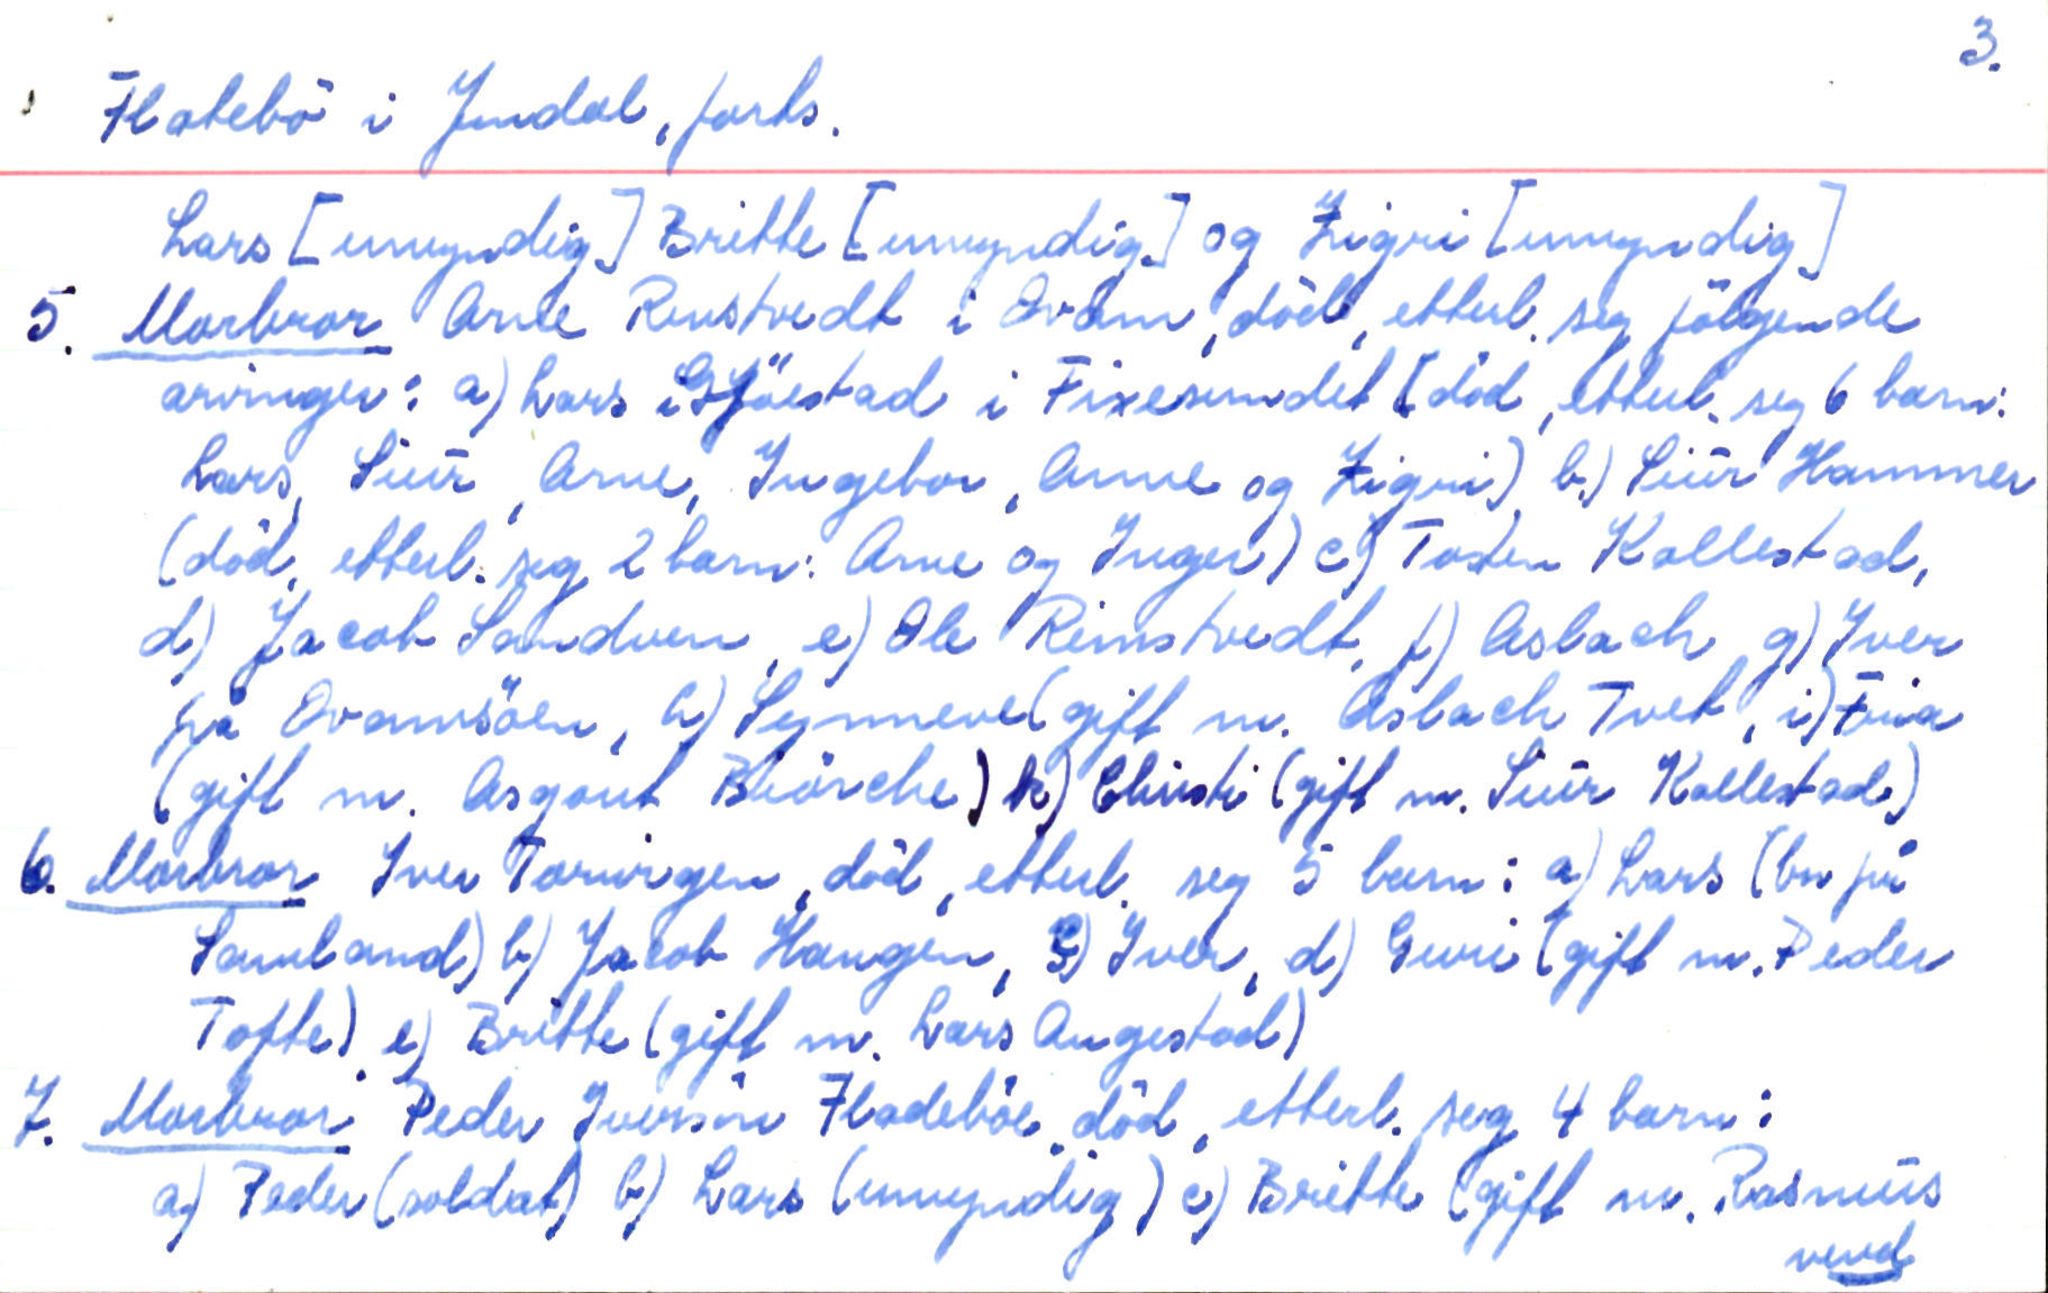 3.
Flatebö i Jondal, forts.
Lars [umyndig] Britte [umyndig] og Zigri [umyndig]
5. Morbror Arne Remstvedt i Qvam, död, etterl. seg fölgende
arvinger: a) Lars i Sjöestad i Fixesundet [död, etterl. seg 6 barn:
Lars, Siur, Arne, Ingebor, Anne og Zigri) b.) Siur Hammer
(död, etterl. seg 2 barn: Arne og Inger) c) Tosten Kallestad,
d) Jacob Sandven, e) Ole Remstvedt, f) Asbach, g) Iver
på Qvamsöen, h) Synneve (gift m. Asbach Tvet, i)
(gift m. Asgout Biörche) k) Christi (gift m. Siur Kallestad)
6. Morbror Iver Torvigen, död, etterl. seg 5 barn: a) Lars (br på
Samland) b) Jacob Haugen, c) Iver, d) Guri (gift m. Peder
Tofte) e) Britte (gift m. Lars Augestad)
7. Morbror Peder Iversön Fladeböe, död, etterl. seg 4 barn:
a) Peder (soldat) b) Lars (umyndig) c) Britte (gift m. Rasmus
vend